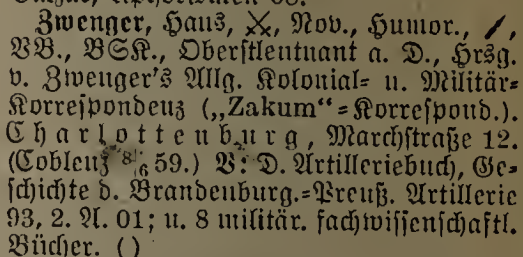 Zwenger, Haus, ⚔, Nov., Humor., /,
VB., BSK., Oberstlentnant a. D., Hrsg.
v. Zwenger's Allg. Kolonial= u. Militär=
Korrespondenz („Zakum“=Korrespond.).
Charlottenburg, Marchstraße 12.
(Coblenz 8/6 59.) V: D. Artilleriebuch, Ge=
schichte d. Brandenburg.=Preuß. Artillerie
93, 2. A. 01; u. 8 militär. fachwissenschaftl.
Bücher. ( )